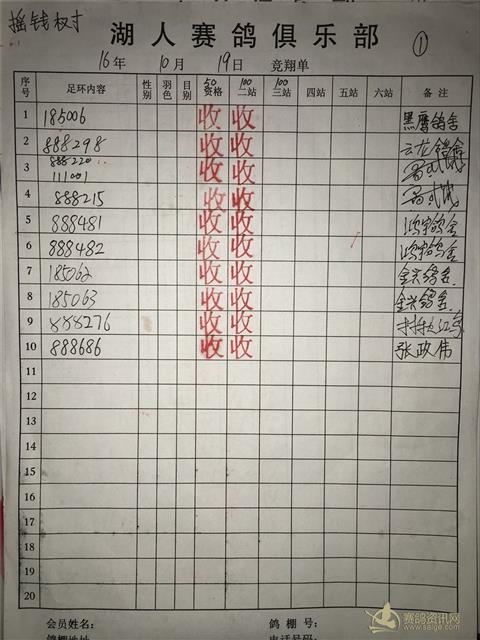 摇钱权寸
①
湖人赛鸽俱乐部
16年 10月 19日 竞翔单
50 100 100
序号 足环内容 性别 羽色 目别 资格 二站 三站 四站 五站 六站 备注
1 185006 收 收 黑鹰鸽舍
2 888298 收 收 云龙鸽舍
3 888220 111001 收 收
4 888215 收 收
5 888481 收 收 鸿宇鸽舍
6 888482 收 收 鸿宇鸽舍
7 185062 收 收 金兴鸽舍.
8 185063 收 收 金兴鸽舍.
9 888276 收 收
10 888686 收 收 张政伟
11
12
13
14
15
16
17
18
19
20
会员姓名: 鸽棚号:
鸽棚地址: 电话号码:
赛鸽资讯网
www.saige.com